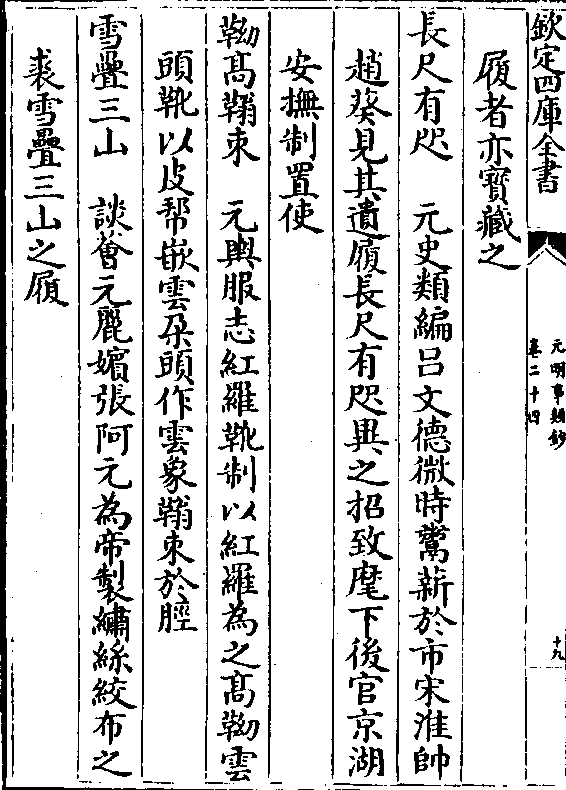 欽定四庫全書
元明事類鈔
卷二十四
十九
履者亦寳藏之
長尺有咫　元史類編吕文德微時鬻薪於市宋淮帥
趙葵見其遺履長尺有咫異之招致麾下後官京湖
安撫制置使
靿髙鞝束　元輿服志紅羅靴制以紅羅為之髙靿雲
頭靴以皮帮嵌雲朶頭作雲象鞝束於脛
雪疊三山　談薈元麗嬪張阿元為帝製繡絲絞布之
裘雪疊三山之履